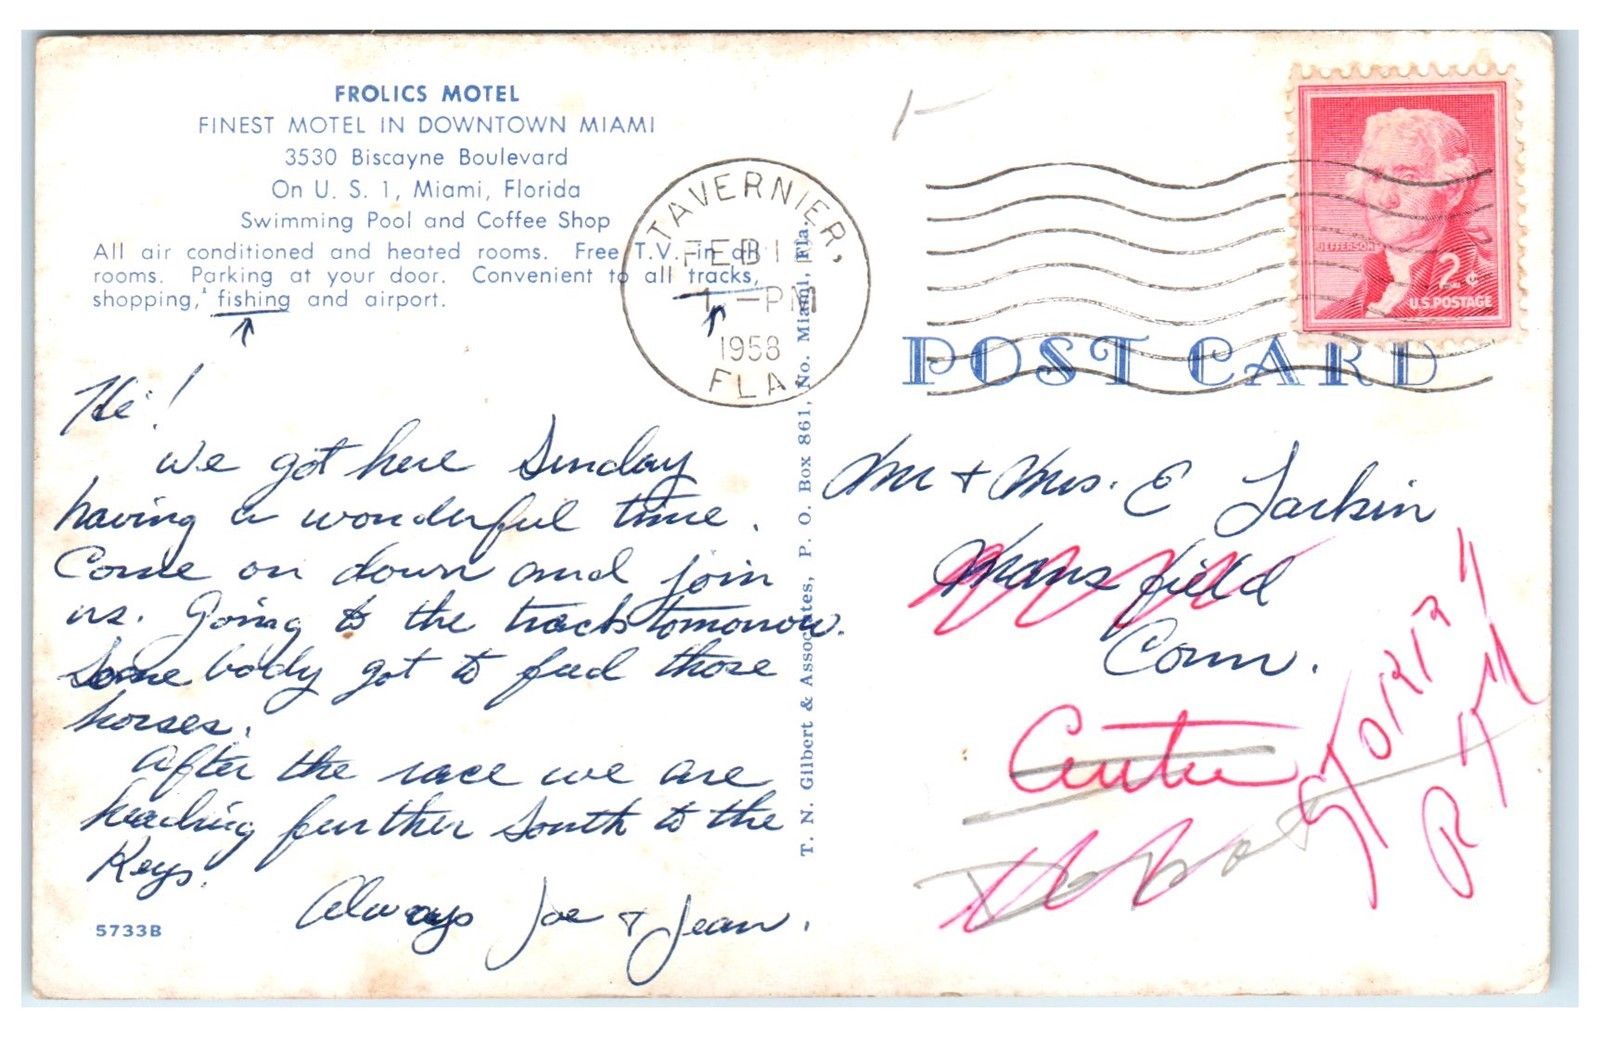 FROLICS MOTEL
FINEST MOTEL IN DOWNTOWN MIAMI
3530 Biscayne Boulevard
On U. S. 1, Miami, Florida
Swimming Pool and Coffee Shop
All air conditioned and heated rooms. Free T.V. in all
rooms. Parking at your door. Convenient to all tracks,
shopping, fishing and airport.
Hi!
We got here Sunday
having a wonderful time.
Come on down and join
us. Going to the track tomorrow.
Some body got to feed those
horses.
After the race we are
heading further South to the
Keys.
Always Joe & Jean.
5733B
T. N. Gilbert & Associates, P. O. Box 861, No. Miami, Fla.
TAVERNIER,
FEB
-PM
1958
FLA
JEFFERSON
2¢
U.S. POSTAGE
POST CARD
Mr + Mrs. E Larkin
Mansfield
Conn.
Center
Depot
STORRS